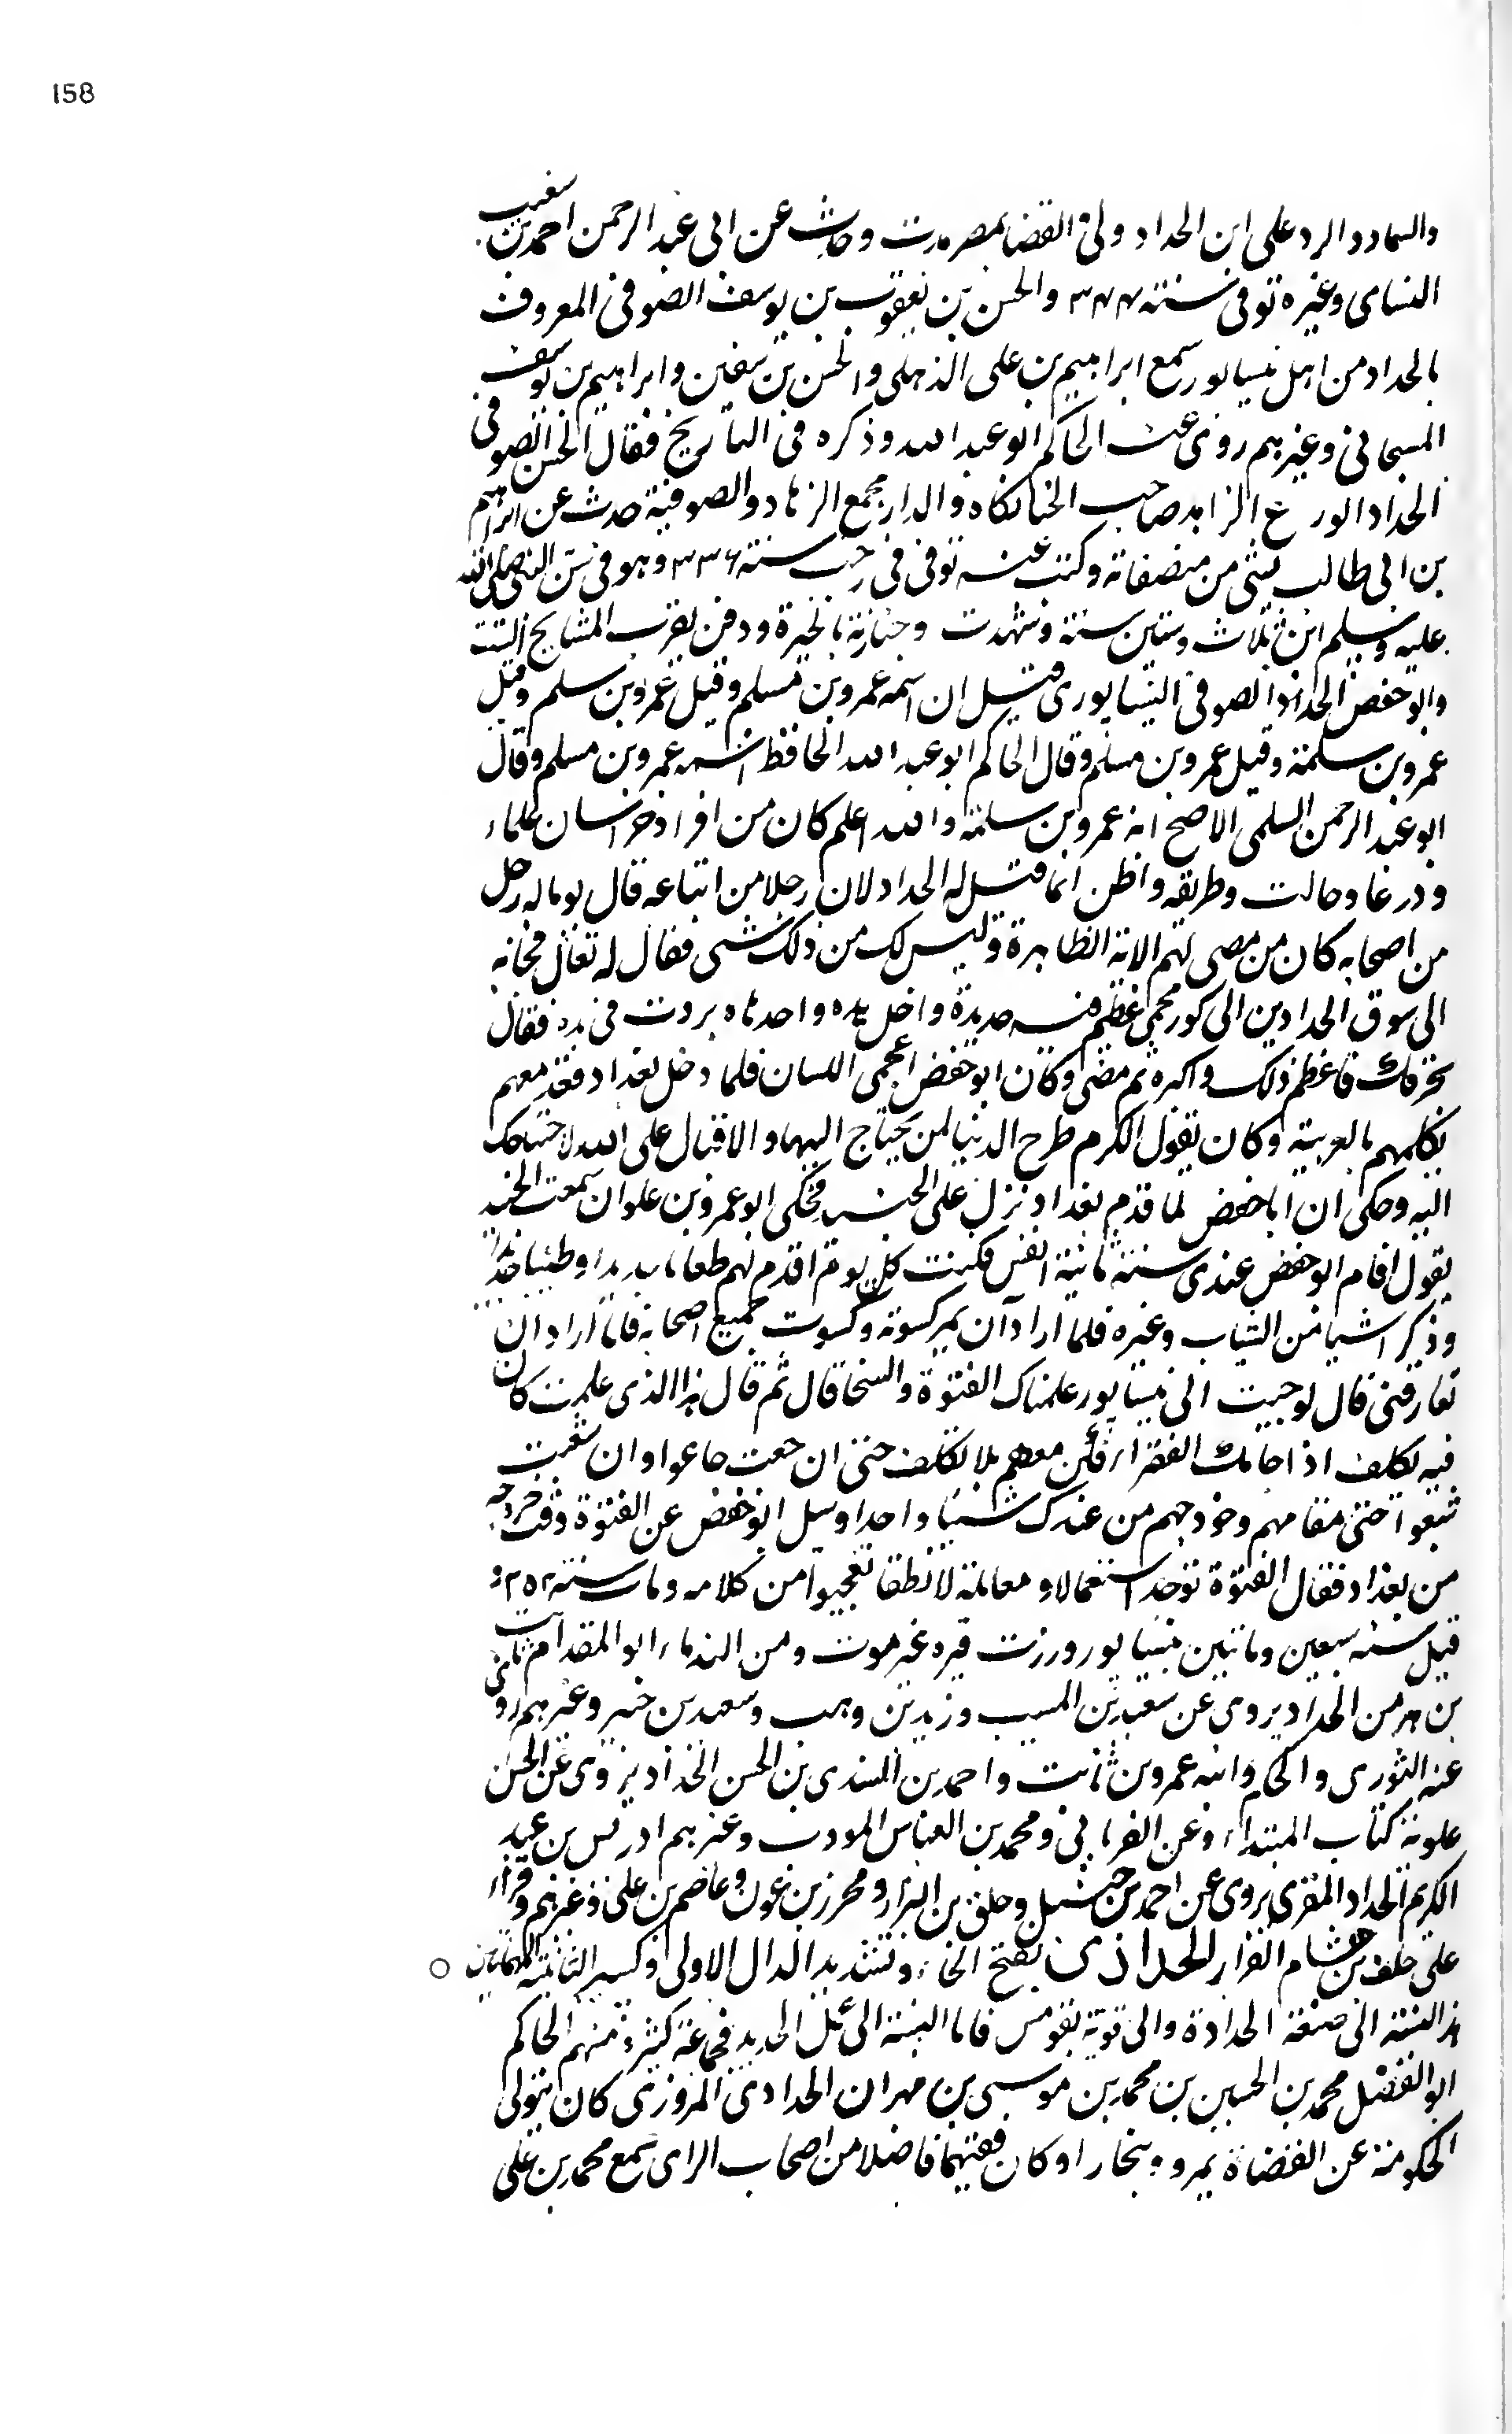 158
والسماد والرد على ابن الحداد ولى القضا بمصر مدت وحدث عن ابى عبد الرحمن احمد بن شعيب
النساى وغيره توفى سنة ٣٤٤ والحسن بن يعقوب بن يوسف الصوفى المعروف
بالحداد من اهل نيسابور سمع ابراهيم بن على الذهلى والحسن بن سفين وابراهيم بن يوسف
وغيرهم روى عنه الحاكم ابو عبد الله وذكره فى التاريخ فقال الحسن الصوفى
الحداد الورع الزاهد صاحب الخانكاه والدار مجمع الزهاد والصوفية حدث عن ابراهيم
بن ابى طالب بشى من مصنفاته وكتب عنه توفى فى رجب سنة ٣٣٦ وهو فى سن النبى صلى الله
عليه وسلم ابن ثلاث وستين سنة وشهدت وجنازته بالحيرة ودفن بقرب المشايخ الستة
وابو حفص الحداد الصوفى النيسابورى قيل ان اسمه عمرو بن مسلم وقيل عمرو بن سلم وقيل
عمرو بن سلمة وقيل عمرو بن مسلم وقال الحاكم ابو عبد الله الحافظ اسمه عمرو بن مسلم وقال
ابو عبد الرحمن السلمى الاصح انه عمرو بن سلمة والله اعلم كان من افراد خراسان علماء
وورعا وحالت وطريقه واظن انما قيل له الحداد لان رجلا من اتباعه قال يوما له رجل
من اصحابه كان من مضى لهم الاية الظاهرة وليس لك من ذلك شى فقال له تعال فجا به
الى سوق الحدادين الى كور محمى عظيم فيه حديدة وادخل يده واخذها فبردت فى يده فقال
يجزيك فاعظم ذلك واكبره ثم مضى وكان ابو حفص اعجمى اللسان فلما دخل بغداد قعد معهم
يكلمهم بالعربية وكان يقول الكرم طرح الدنيا لمن يحتاج اليها والاقبال على الله لاحتياجك
اليه وحكى ان ابا حفص لما قدم بغداد نزل على الجنيد فحكى ابو عمرو بن علوان سمعت الجنيد
يقول اقام ابو حفص عندى سنة ثمانية انفس فكنت كل يوم اقدم لهم طعاما جديدا وطيبا جديدا
وذكر اشيا من الثياب وغيره فلما اراد ان يمر كسوته وكسوت جميع اصحابه فلما اراد ان
يفارقنى قال لو جيت الى نيسابور علمناك الفتوة والسخا قال ثم قال هذا الذى عملت كان
فيه تكلف اذا جاءك الفقراء فكن معهم بلا تكلف حتى ان جعت جاعوا وان شبعت
شبعوا حتى مقامهم وخروجهم من عندك شيا واحدا وسيل ابو حفص عن الفتوة وقت خروجه
من بغداد فقال الفتوة توخذ استعمالا ومعاملة لا نطقا تعجبوا من كلامه ومات سنة ٢٥٢ و
قيل سنة سبعين وماتين بنيسابور وزرت قبره غير موت ومن القدماء ابو المقدام ثابت
بن هرمز الحداد يروى عن سعيد بن المسيب وزيد بن وهب وسعيد بن جبير وغيرهم روى
عنه الثورى والحكم وابنه عمرو بن ثابت واحمد بن السندى بن الحسن الحداد يروى عن الحسن
علويه كتاب المبتداء وعن الفريابى ومحمد بن العباس المودب وغيرهم ادريس بن عبد
الكريم الحداد المقرى يروى عن احمد بن حنبل وخلف بن البزار ومحرز بن عون وعاصم بن على وغيرهم وقراء
على خلف بن هشام البزار الحدادى بفتح الحاء وتشديد الدال الاولى وكسر الثانية المهملتين
هذه النسبة الى صنعة الحدادة والى قرية بقومس فاما النسبة الى عمل الحديد فجماعة كثيرة منهم الحاكم
ابو الفضل محمد بن الحسين بن محمد بن موسى بن مهران الحدادى المروزى كان يتولى
الحكومة عن القضاة بمرو وبخارا وكان فقيها فاضلا من اصحاب الراى سمع محمد بن على